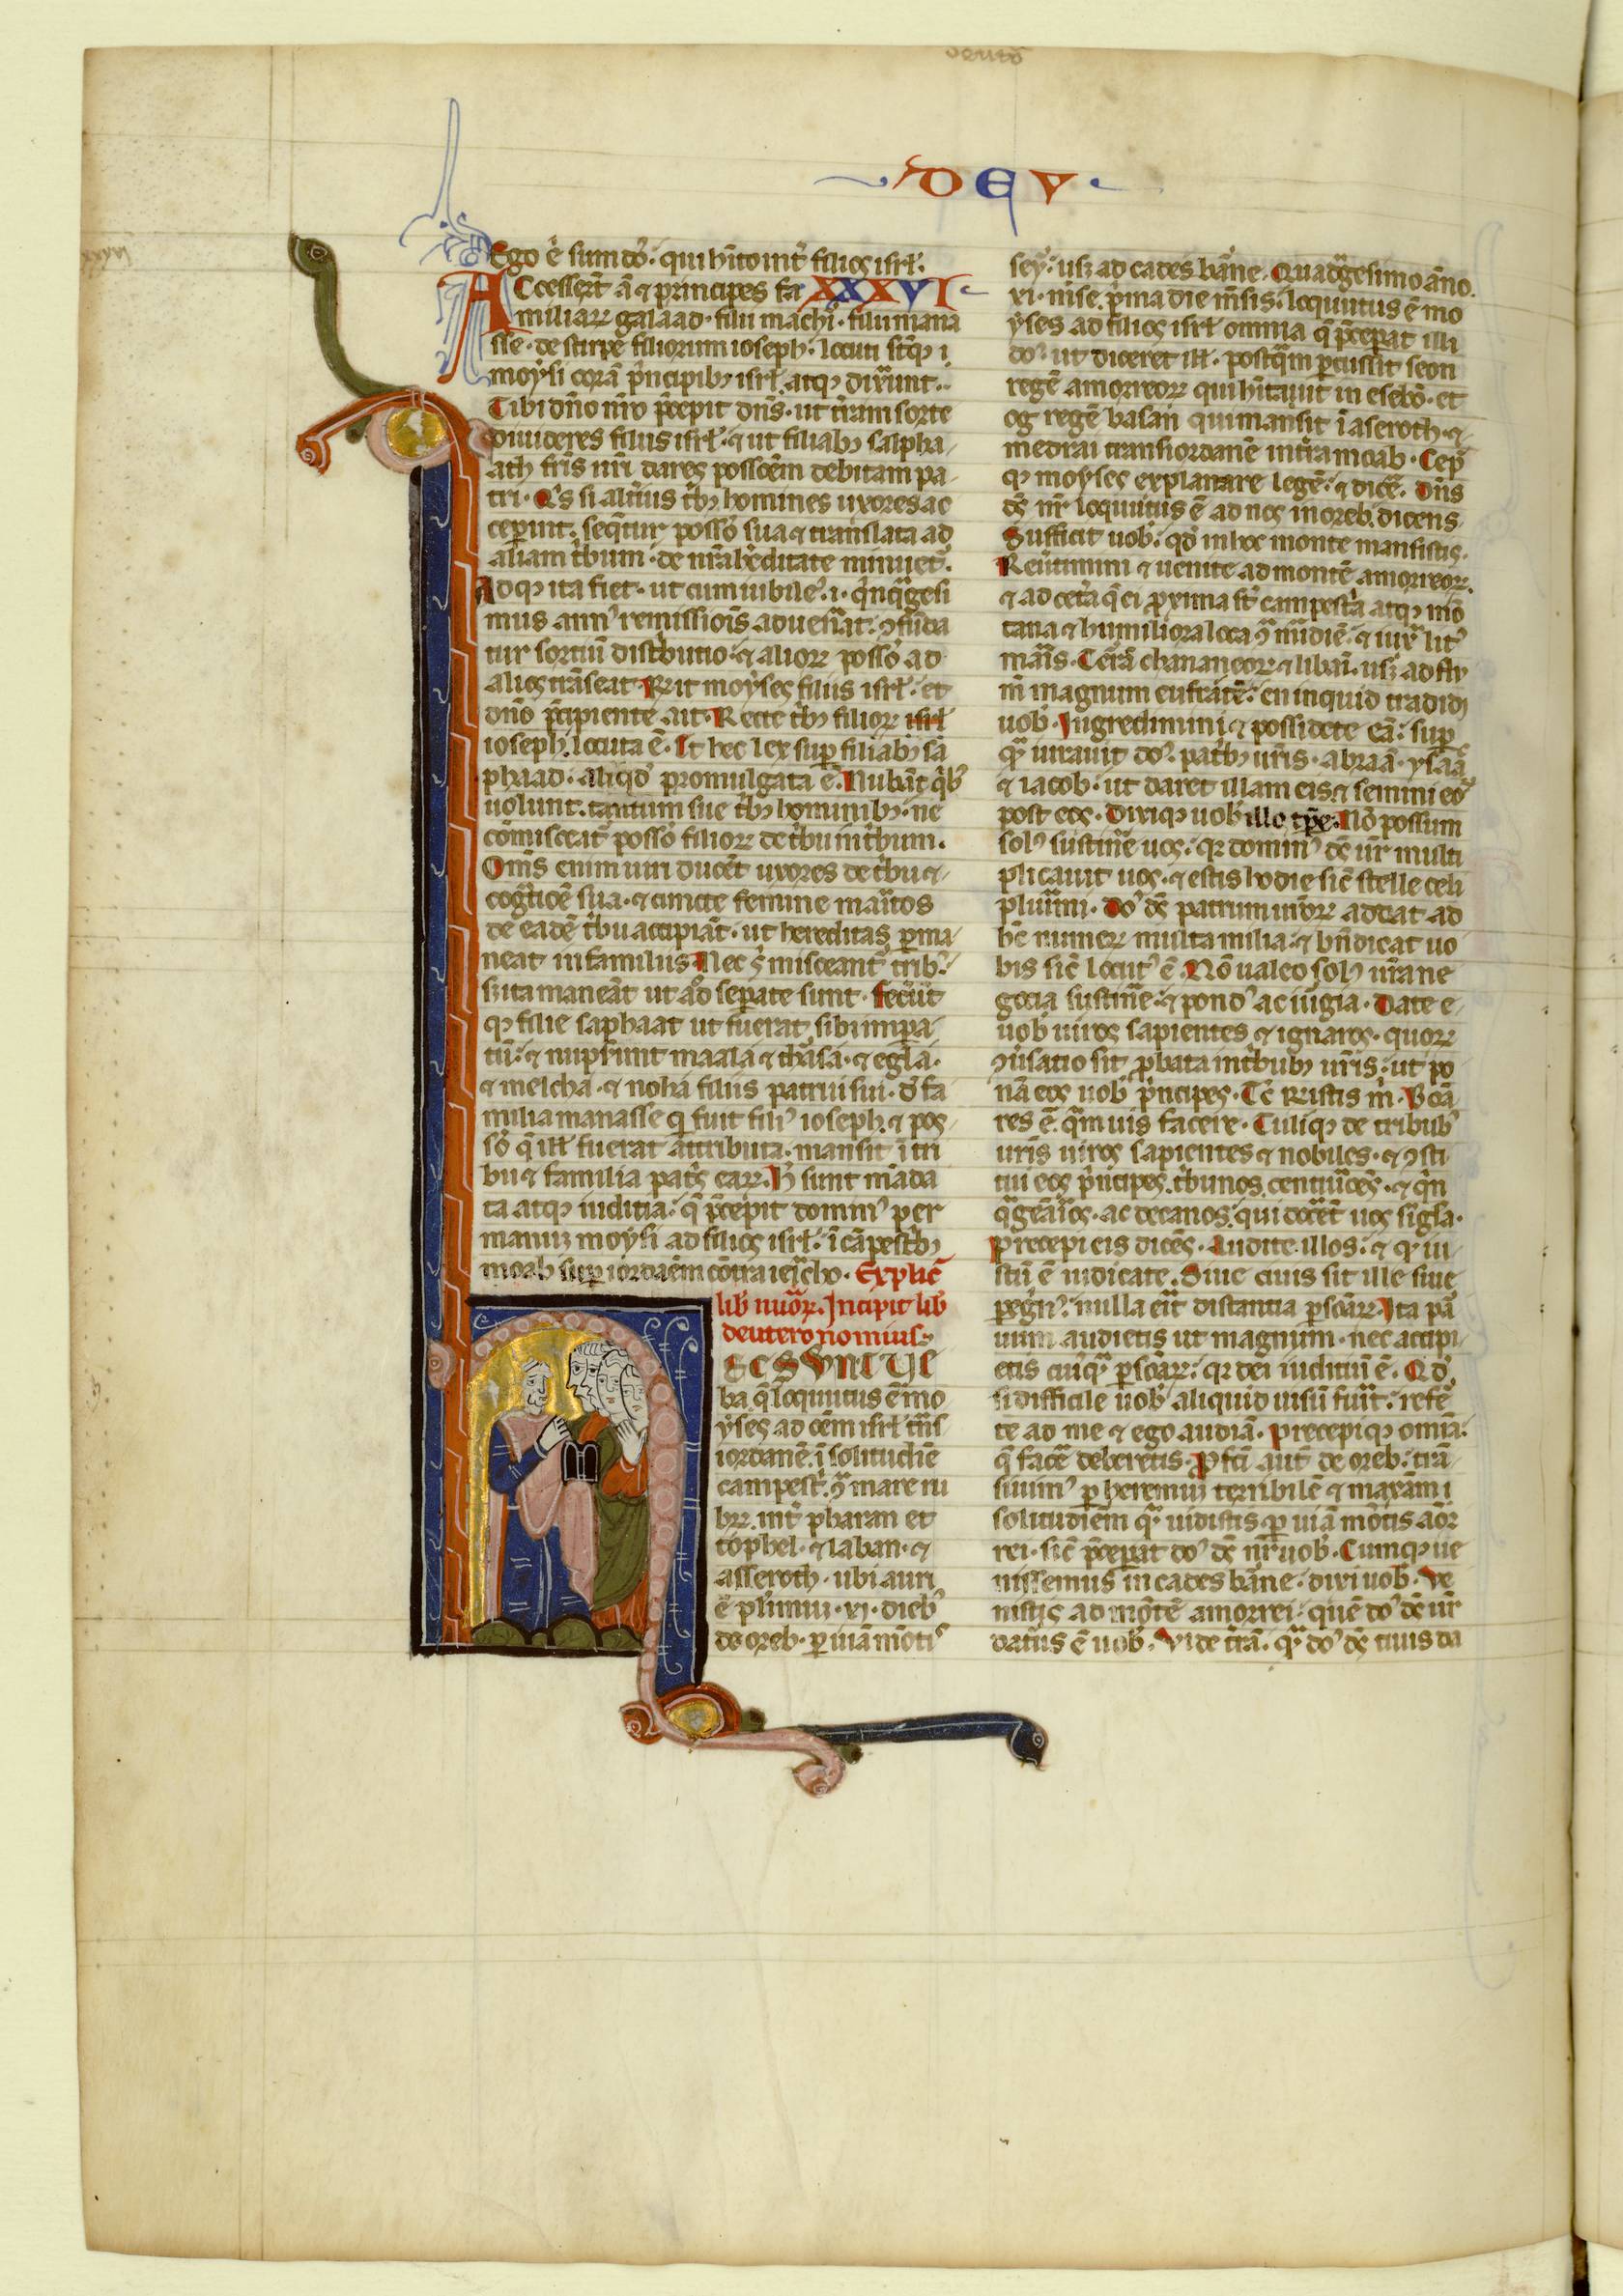 DEV
Ego ē sum dō: qui hīto inť filios isrł.
Accesser̄t ā & principes fa XXXVI
miliaꝝ galaad. filii machi. filii mana
sse. de stirpe filiorum ioseph: locuti st̄ qꝫ i
moysi corā p̄ncipibꝫ isrł. atqꝫ dixunt.
Tibi dn̄o nr̄o p̄cepit dn̄s. ut tr̄am sorte
diuideres filiis isrł. & ut filiabꝫ salpha
ath fr̄is nr̄i dares possōem debitam pa
tri. Qs si altius tbꝫ homines uxores ac
ceperint. seq̄tur possō sua & translata ad
aliam tbum. de nr̄a hēditate minuet.
Adqꝫ ita fiet. ut cum iubile. i. q̄nq̄gesi
mus ann' remissiois aduenāt. ꝯfūda
tur sortiū distbutio. & alioꝝ possō ad
alios trāseat. Rit moyses filiis isrł. et
dn̄o p̄cipiente. ait. Recte tbꝫ filioꝝ isrł
ioseph. locuta ē. Et hec lex suꝑ filiabꝫ sa
phaad. aliqd promulgata ē. Nubāt qb
uolunt. tantum sue tbꝫ hominibꝫ. ne
cōmisceat possō filioꝝ de tbu in tbum.
Om̄s enim uiri ducēt uxores de tbu &
cogtioē sua. & cuncte femine maitos
de eadē tbu accipiāt. ut hereditas ꝑma
neat in familiis. Nec s̄ misceantr trib.
sꝫ ita maneāt ut ad separate sunt. fecūt
qꝫ filie saphaat ut fuerat sibi impa
tū. & nupserunt maala & thsa. & egla.
& melcha. & noha filiis patrui sui. d fa
milia manasse q fuit fili' ioseph. & pos
sō q̄ illł fuerat attributa. mansit ī tri
bu & familia pats eaꝝ. H̄ sunt māda
ta atqꝫ iuditia. q̄ p̄cepit domin' per
manuꝫ moysi ad filios isrł. ī cāpestbꝫ
moab supꝫ iordaēm cōtra iericho. Explic̄
lib nuōꝝ. Incipit lib
deuteronomius.
EC SUNT UE
ba q̄ loquutus ē mo
yses ad oēm isrł tn̄s
iordanē. ī solitudiē
campest. ꝯ mare ru
bꝝ. int̄ pharan et
tophel. & laban. &
asseroth. ubi auri
ē plimuꝫ. xi. dieb
de oreb. ꝑ uiā mōtis
sey. usꝫ ad cades bāne. Quadgesimo āno.
xi. mse. p̄ma die m̄sis. loquutus ē mo
yses ad filios isrł omnia q̄ p̄cepat illi
do' ut diceret ill. postqm ꝑcussit seon
regē amorreoꝝ qui hītauit in esebō. et
og regē basan qui mansit ī aseroth. &
medrai trans iordanē in tr̄a moab. Cep
qꝫ moyses explanare legē. & dice. Dn̄s
ds̄ nr̄ loquutus ē ad nos in oreb. dicens
Sufficit uob. qd in hoc monte mansistis.
Reūtimini & uenite ad montē amorreoꝝ.
& ad cetā q̄ ei ꝓxima st̄ campestā atqꝫ mō
tana & humiliora loca ꝯ midiē. & iux̄ lit'
maīs. Terā chananeoꝝ & libāi. usꝫ ad flu
m̄ magnum eufratē. en inquid tradidi
uob. Ingredimini & possidete eā. suꝑ
qa iurauit do'. patbꝫ ur̄is. abraā. ysāā
& iacob. ut daret illam eis & semini eoꝝ
post eos. Dixiqꝫ uob illo tp̄e. Nō possum
sol' sustine uos. qꝛ domin' ds̄ ur̄ multi
plicauit uos. & estis hodie sic stelle celi
pluimi. Do' ds̄ patrum ur̄oꝝ addat ad
hc̄ numeꝝ multa milia. & bn̄dicat uo
bis sic locut' ē. Nō ualeo sol' ur̄a ne
gocia sustine. & pond' ac iurgia. Date e
uob uiros sapientes & ignaros. quoꝝ
ꝯuisatio sit ꝓbata in tbubꝫ ur̄is. ut po
nā eos uob p̄ncipes. Tc̄ Ristis m̄. Bōa
res ē. qm uis facere. Tuliqꝫ de tribub
uris uiros sapientes & nobiles. & ꝯsti
tui eos p̄ncipes. tbunos. centuioēs. & q̄n
q̄geāios. ac decanos. qui docēt uos sigla.
Precepi eis dices. Audite illos. & q iu
stū ē iudicate. Siue ciuis sit ille siue
ꝑegn'. nulla eit distantia ꝑsoāꝝ. Ita pā
uum audietis ut magnum. nec accipi
etis cuiqꝫ ꝑsoāꝝ. qꝛ dei iuditiū ē. Qd
si difficile uob aliquid uisū fuit. refē
te ad me & ego audiā. Precepiqꝫ omia.
q̄ face deberetis. Pfci aut̄ de oreb. trā
siuim' ꝑ heremuꝫ terribilē & maxām i
solitudiēm qa uidistis. ꝑ uiā mōtis aōr
rei. sic p̄cepat do' ds̄ nr̄ uob. Cumqꝫ ue
nissemus in cades bāne. dixi uob. Ve
nistis ad mōtē amorrei. quē do' ds̄ ur̄
datus ē uob. Vide tr̄ā. qa do' ds̄ tuus da